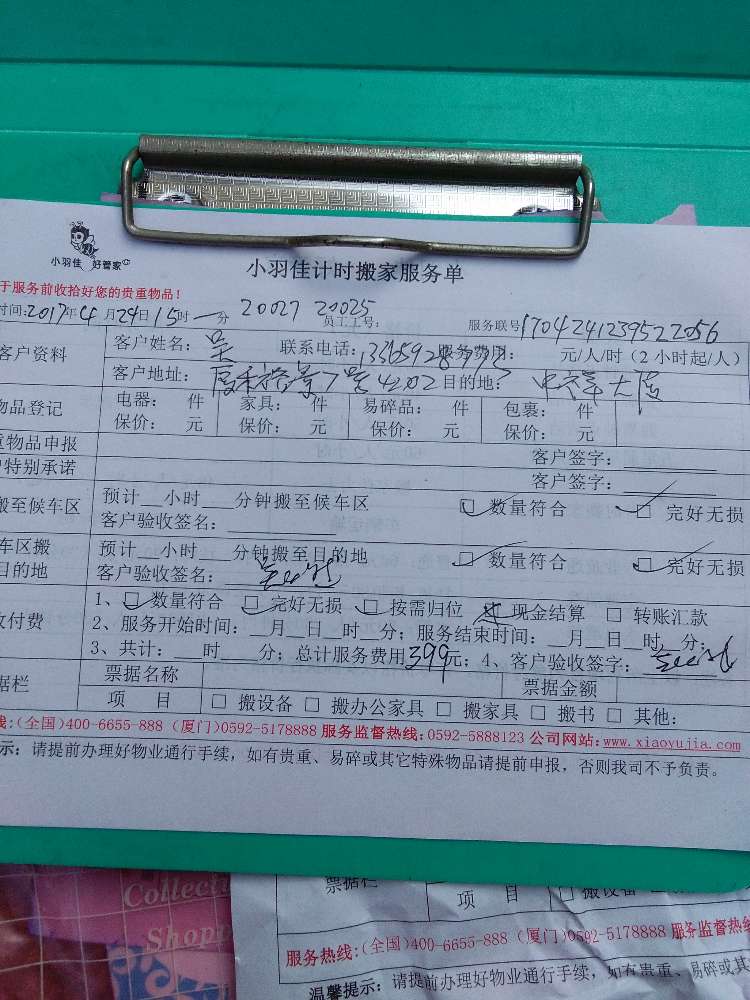 小羽佳 好管家
小羽佳计时搬家服务单
于服务前收拾好您的贵重物品!
时间:2017年4月24日15时一分 20027 20025
员工工号: 服务联号170424123952256
客户资料 客户姓名:吴 联系电话: 服务费用: 元/人/时(2小时起/人)
客户地址: 7号4202 目的地:
物品登记 电器: 件 家具: 件 易碎品: 件 包裹: 件
保价: 元 保价: 元 保价: 元 保价: 元
重物品申报 客户签字:
特别承诺 客户签字:
搬至候车区 预计__小时__分钟搬至候车区 数量符合 完好无损
客户验收签名:
车区搬 预计__小时__分钟搬至目的地 数量符合 完好无损
目的地 客户验收签名:
收付费 1、数量符合 完好无损 按需归位 现金结算 □ 转账汇款
2、服务开始时间:__月__日__时__分;服务结束时间:__月__日__时__分;
3、共计:__时__分;总计服务费用399元;4、客户验收签字:
据栏 票据名称 票据金额
项 目 □ 搬设备 □ 搬办公家具 □ 搬家具 □ 搬书 □ 其他:
线:(全国)400-6655-888 (厦门)0592-5178888 服务监督热线:0592-5888123 公司网站:www.xiaoyujia.com
示:请提前办理好物业通行手续,如有贵重、易碎或其它特殊物品请提前申报,否则我司不予负责。
票据栏
项 目 □ 搬设备
服务热线:(全国)400-6655-888 (厦门)0592-5178888 服务监督热线
温馨提示:请提前办理好物业通行手续,如有贵重、易碎或其
Collect
Shop